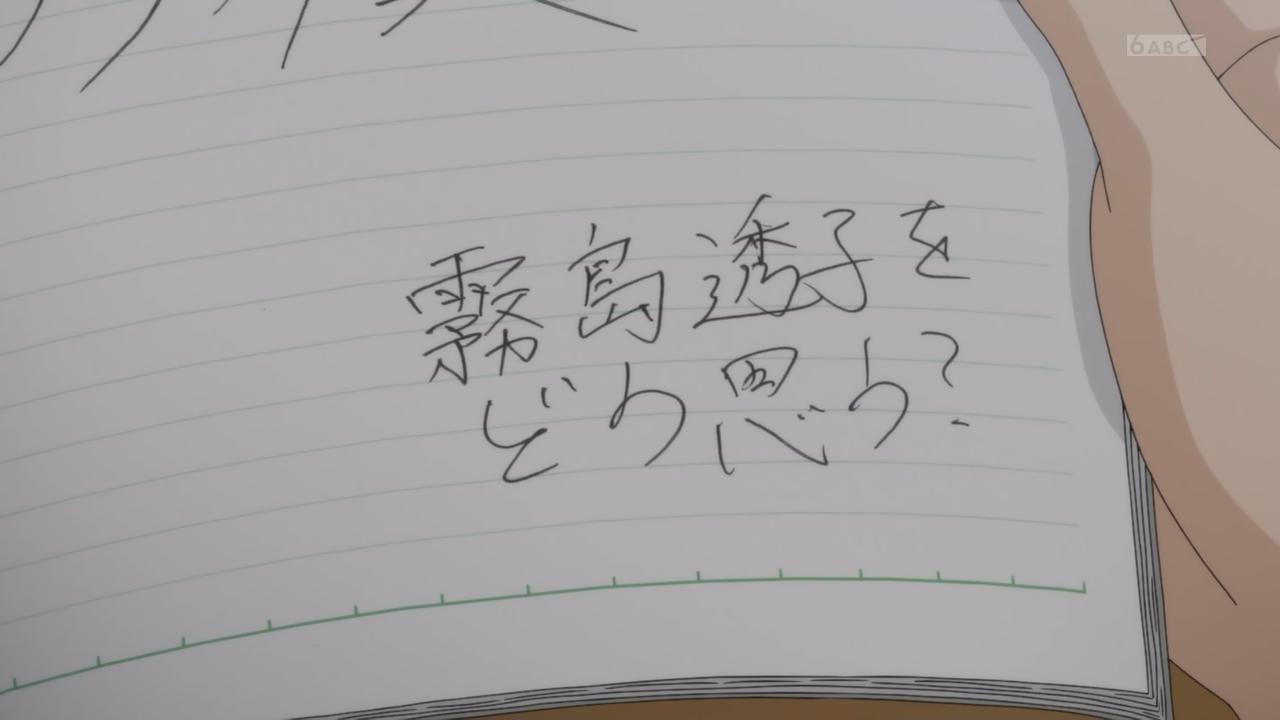 6 ABC
霧島透子を
どう思う?